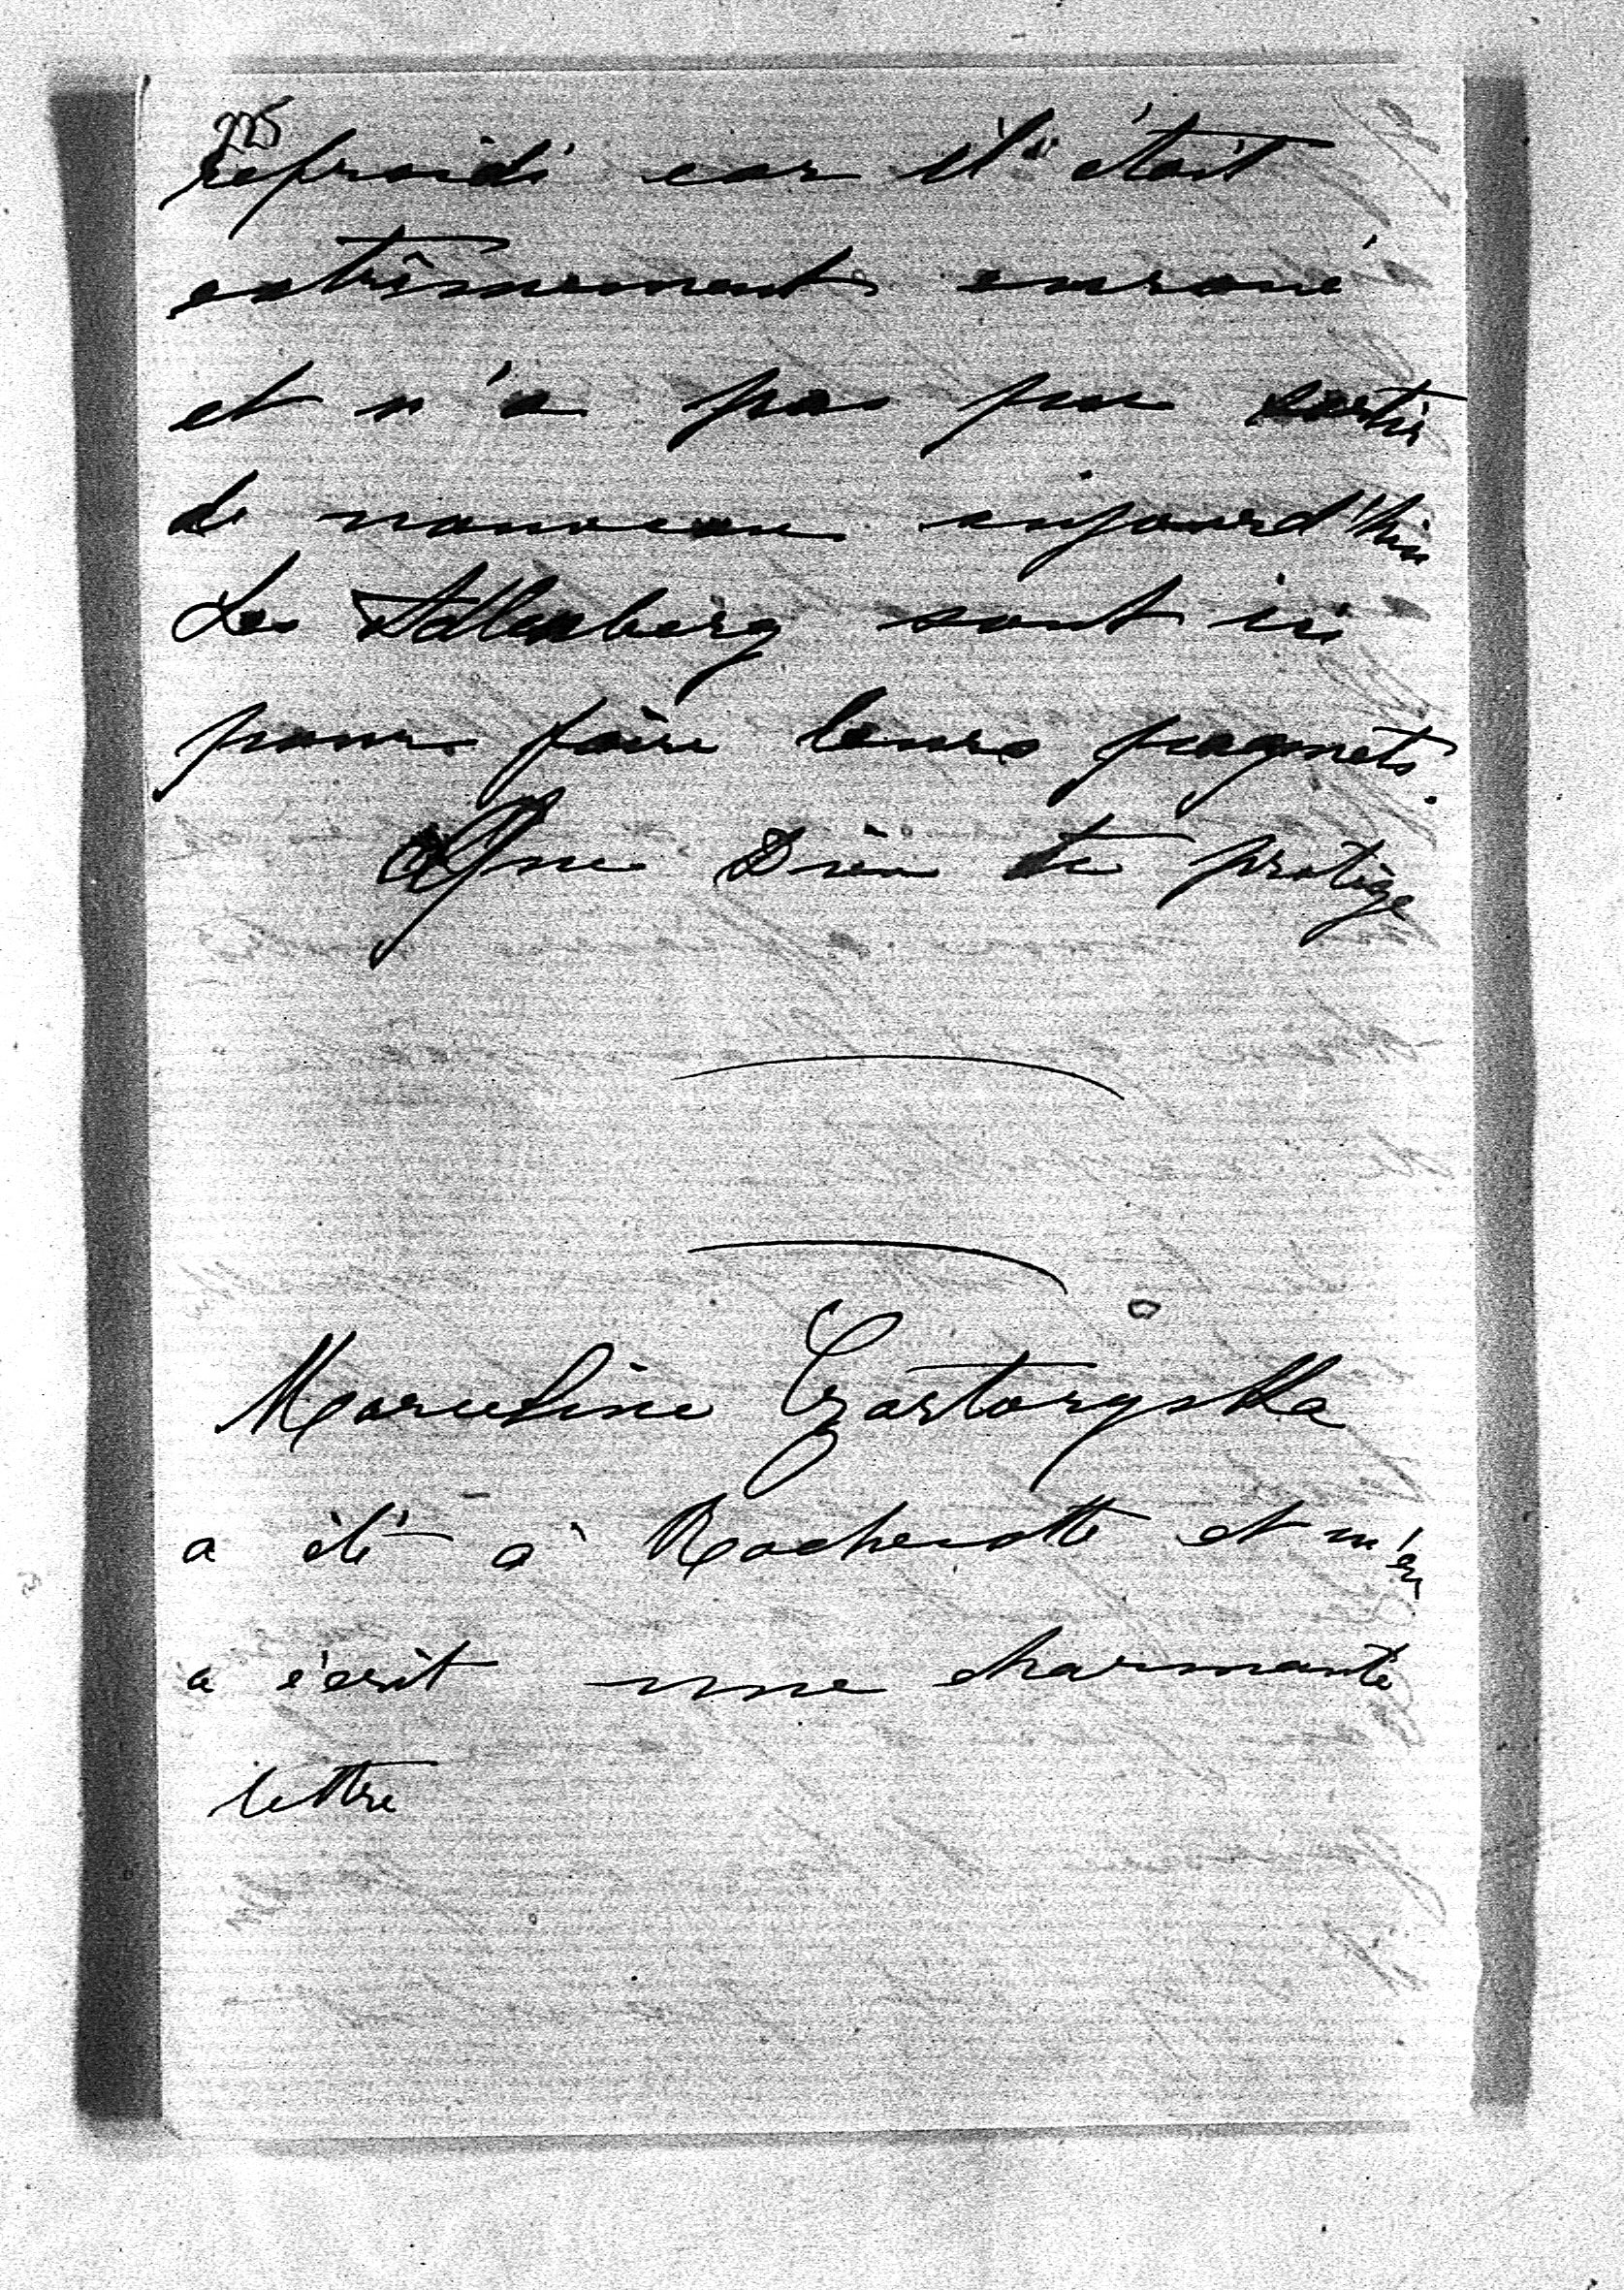 225
refroidi car il était
extrêmement enroué
et n'a pas pu sortir
de nouveau aujourd'hui
Les Adlerberg sont ici
pour faire leurs paquets.
Que Dieu te protège
Marceline Czartoryska
a été à Rochecotte et m'en
a écrit une charmante
lettre